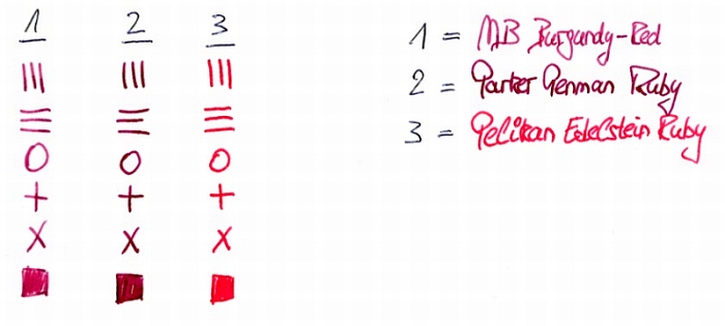 1 2 3
1 = MB Burgundy-Red
2 = Parker Penman Ruby
3 = Pelikan Edelstein Ruby